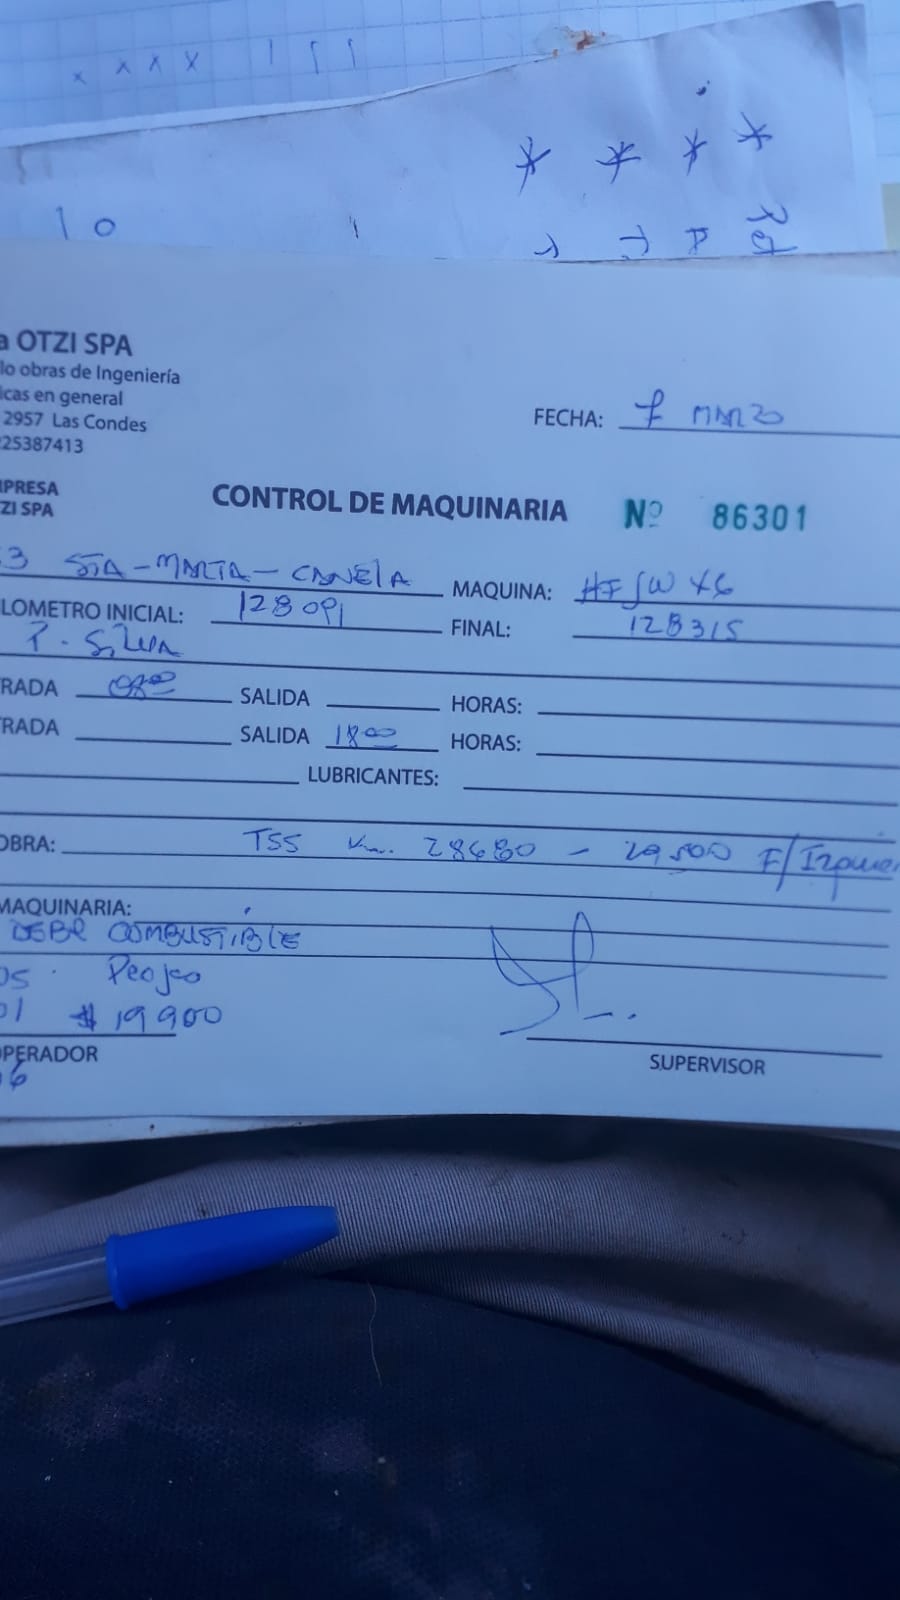 x x x x 1
* * * *
1 0
a OTZI SPA
lo obras de Ingeniería
icas en general
2957 Las Condes
25387413
FECHA: 7 MARZO
MPRESA
ZI SPA
CONTROL DE MAQUINARIA Nº 86301
3 STA-MARTA-CANELA MAQUINA: HFJW X6
LOMETRO INICIAL: 128091 FINAL: 128315
P. Silva
RADA 08:00 SALIDA HORAS:
RADA SALIDA 18:00 HORAS:
LUBRICANTES:
OBRA: TSS Km. 28680 - 29.500 F/Izquier
MAQUINARIA:
DEBE COMBUSTIBLE
OS Peajes
01 $ 19900
OPERADOR
6
SUPERVISOR